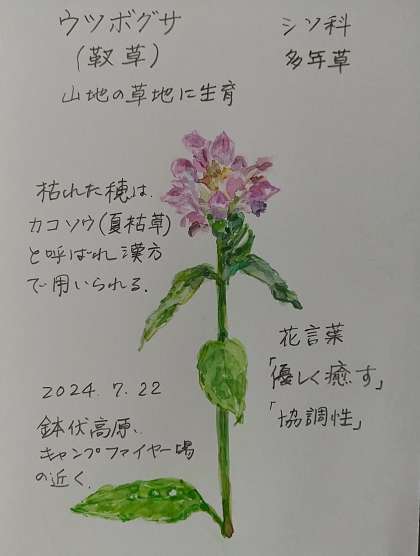 ウツボグサ
(靫草)
シソ科
多年草
山地の草地に生育
枯れた穂は
カコソウ(夏枯草)
と呼ばれ漢方
で用いられる.
花言葉
「優しく癒す」
「協調性」
2024.7.22
鉢伏高原、
キャンプファイヤー場
の近く.